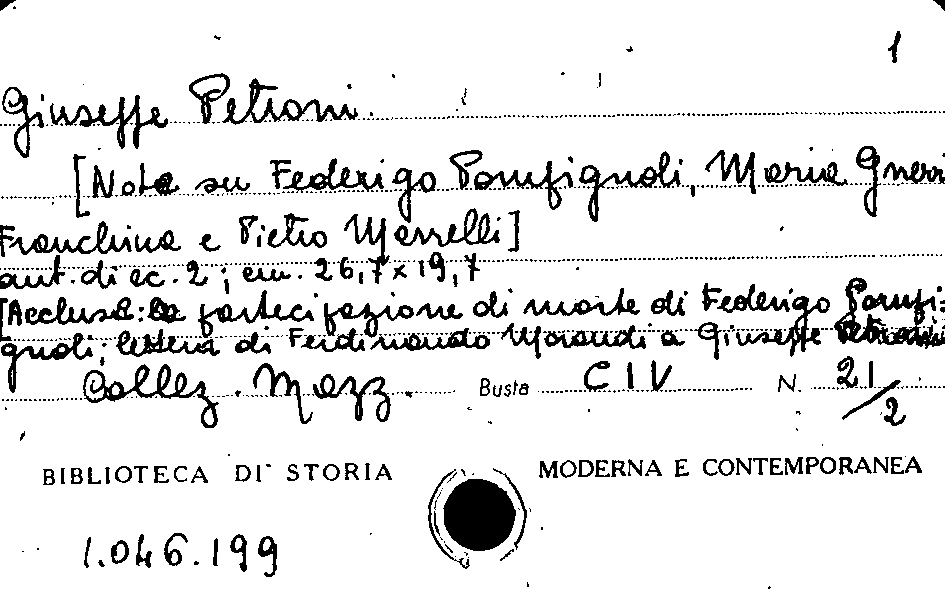 1
Giuseppe Petroni.
[Note su Federigo Pompignoli, Maria Gneri
Franchina e Pietro Marrelli]
aut. di cc. 2; cm. 26,7 x 19,7
[Acclusa: la partecipazione di morte di Federigo Pompi-
gnoli; lettera di Ferdinando Morandi a Giuseppe Petroni]
Collez. Mazz. Busta CIV N. 21/2
BIBLIOTECA DI STORIA MODERNA E CONTEMPORANEA
1.046.199